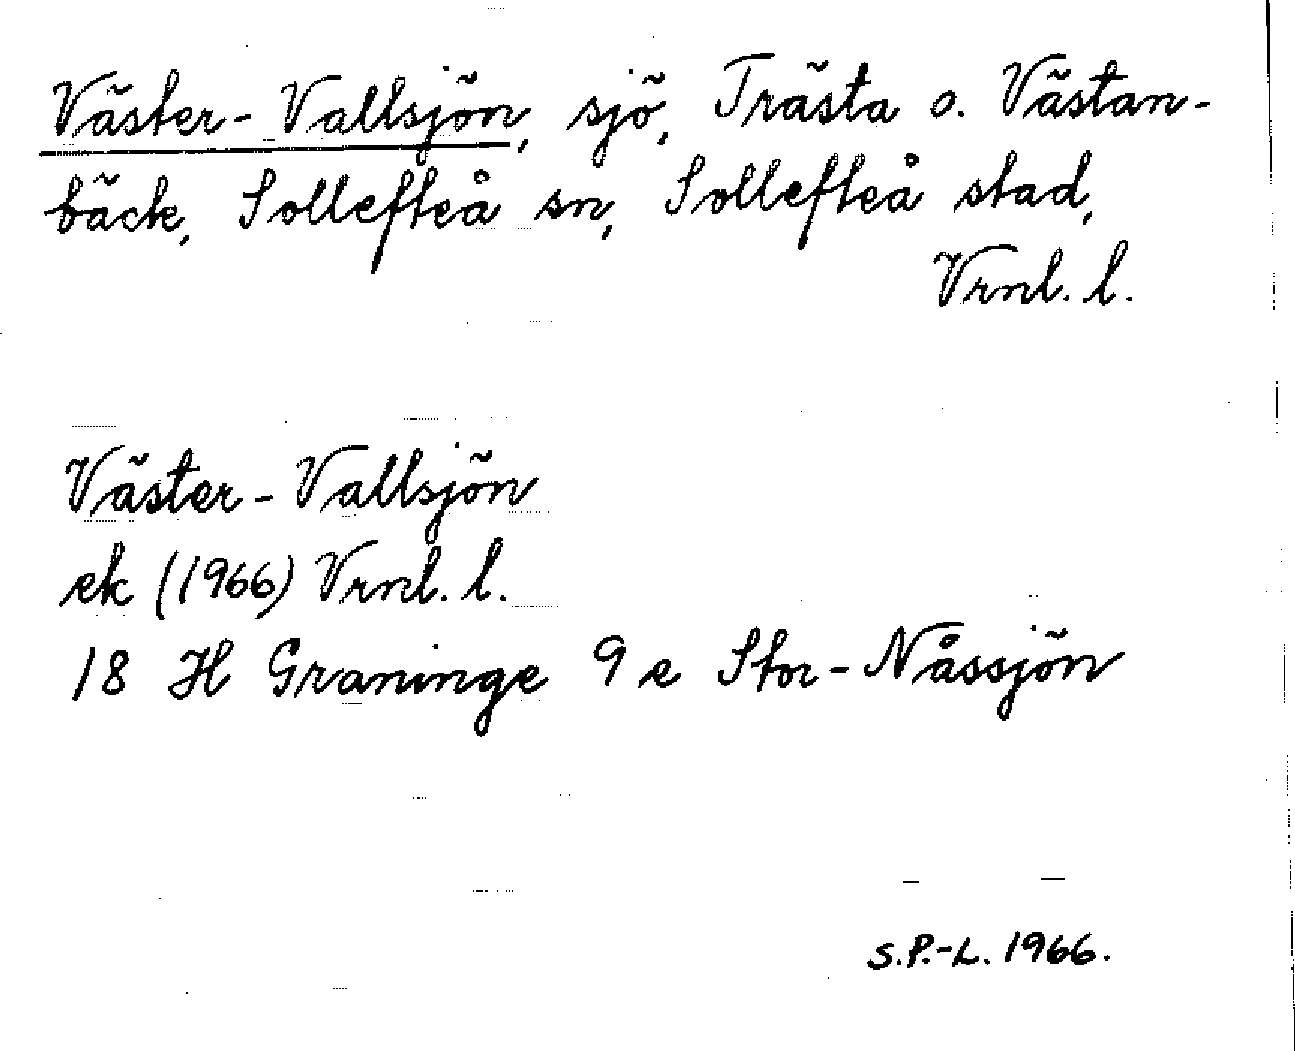 Väster-Vallsjön, sjö, Trästa o. Västan-
bäck, Sollefteå sn, Sollefteå stad,
Vrnl. l.
Väster-Vallsjön
ek (1966) Vrnl. l.
18 H Graninge 9 e Stor-Nåssjön
S.P.-L. 1966.